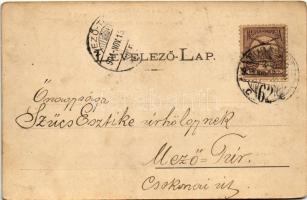 LEVELEZŐ-LAP.
Őnagysága
Szűcs Esztike úrhölgynek
Mező-Túr.
Csokonai út
62